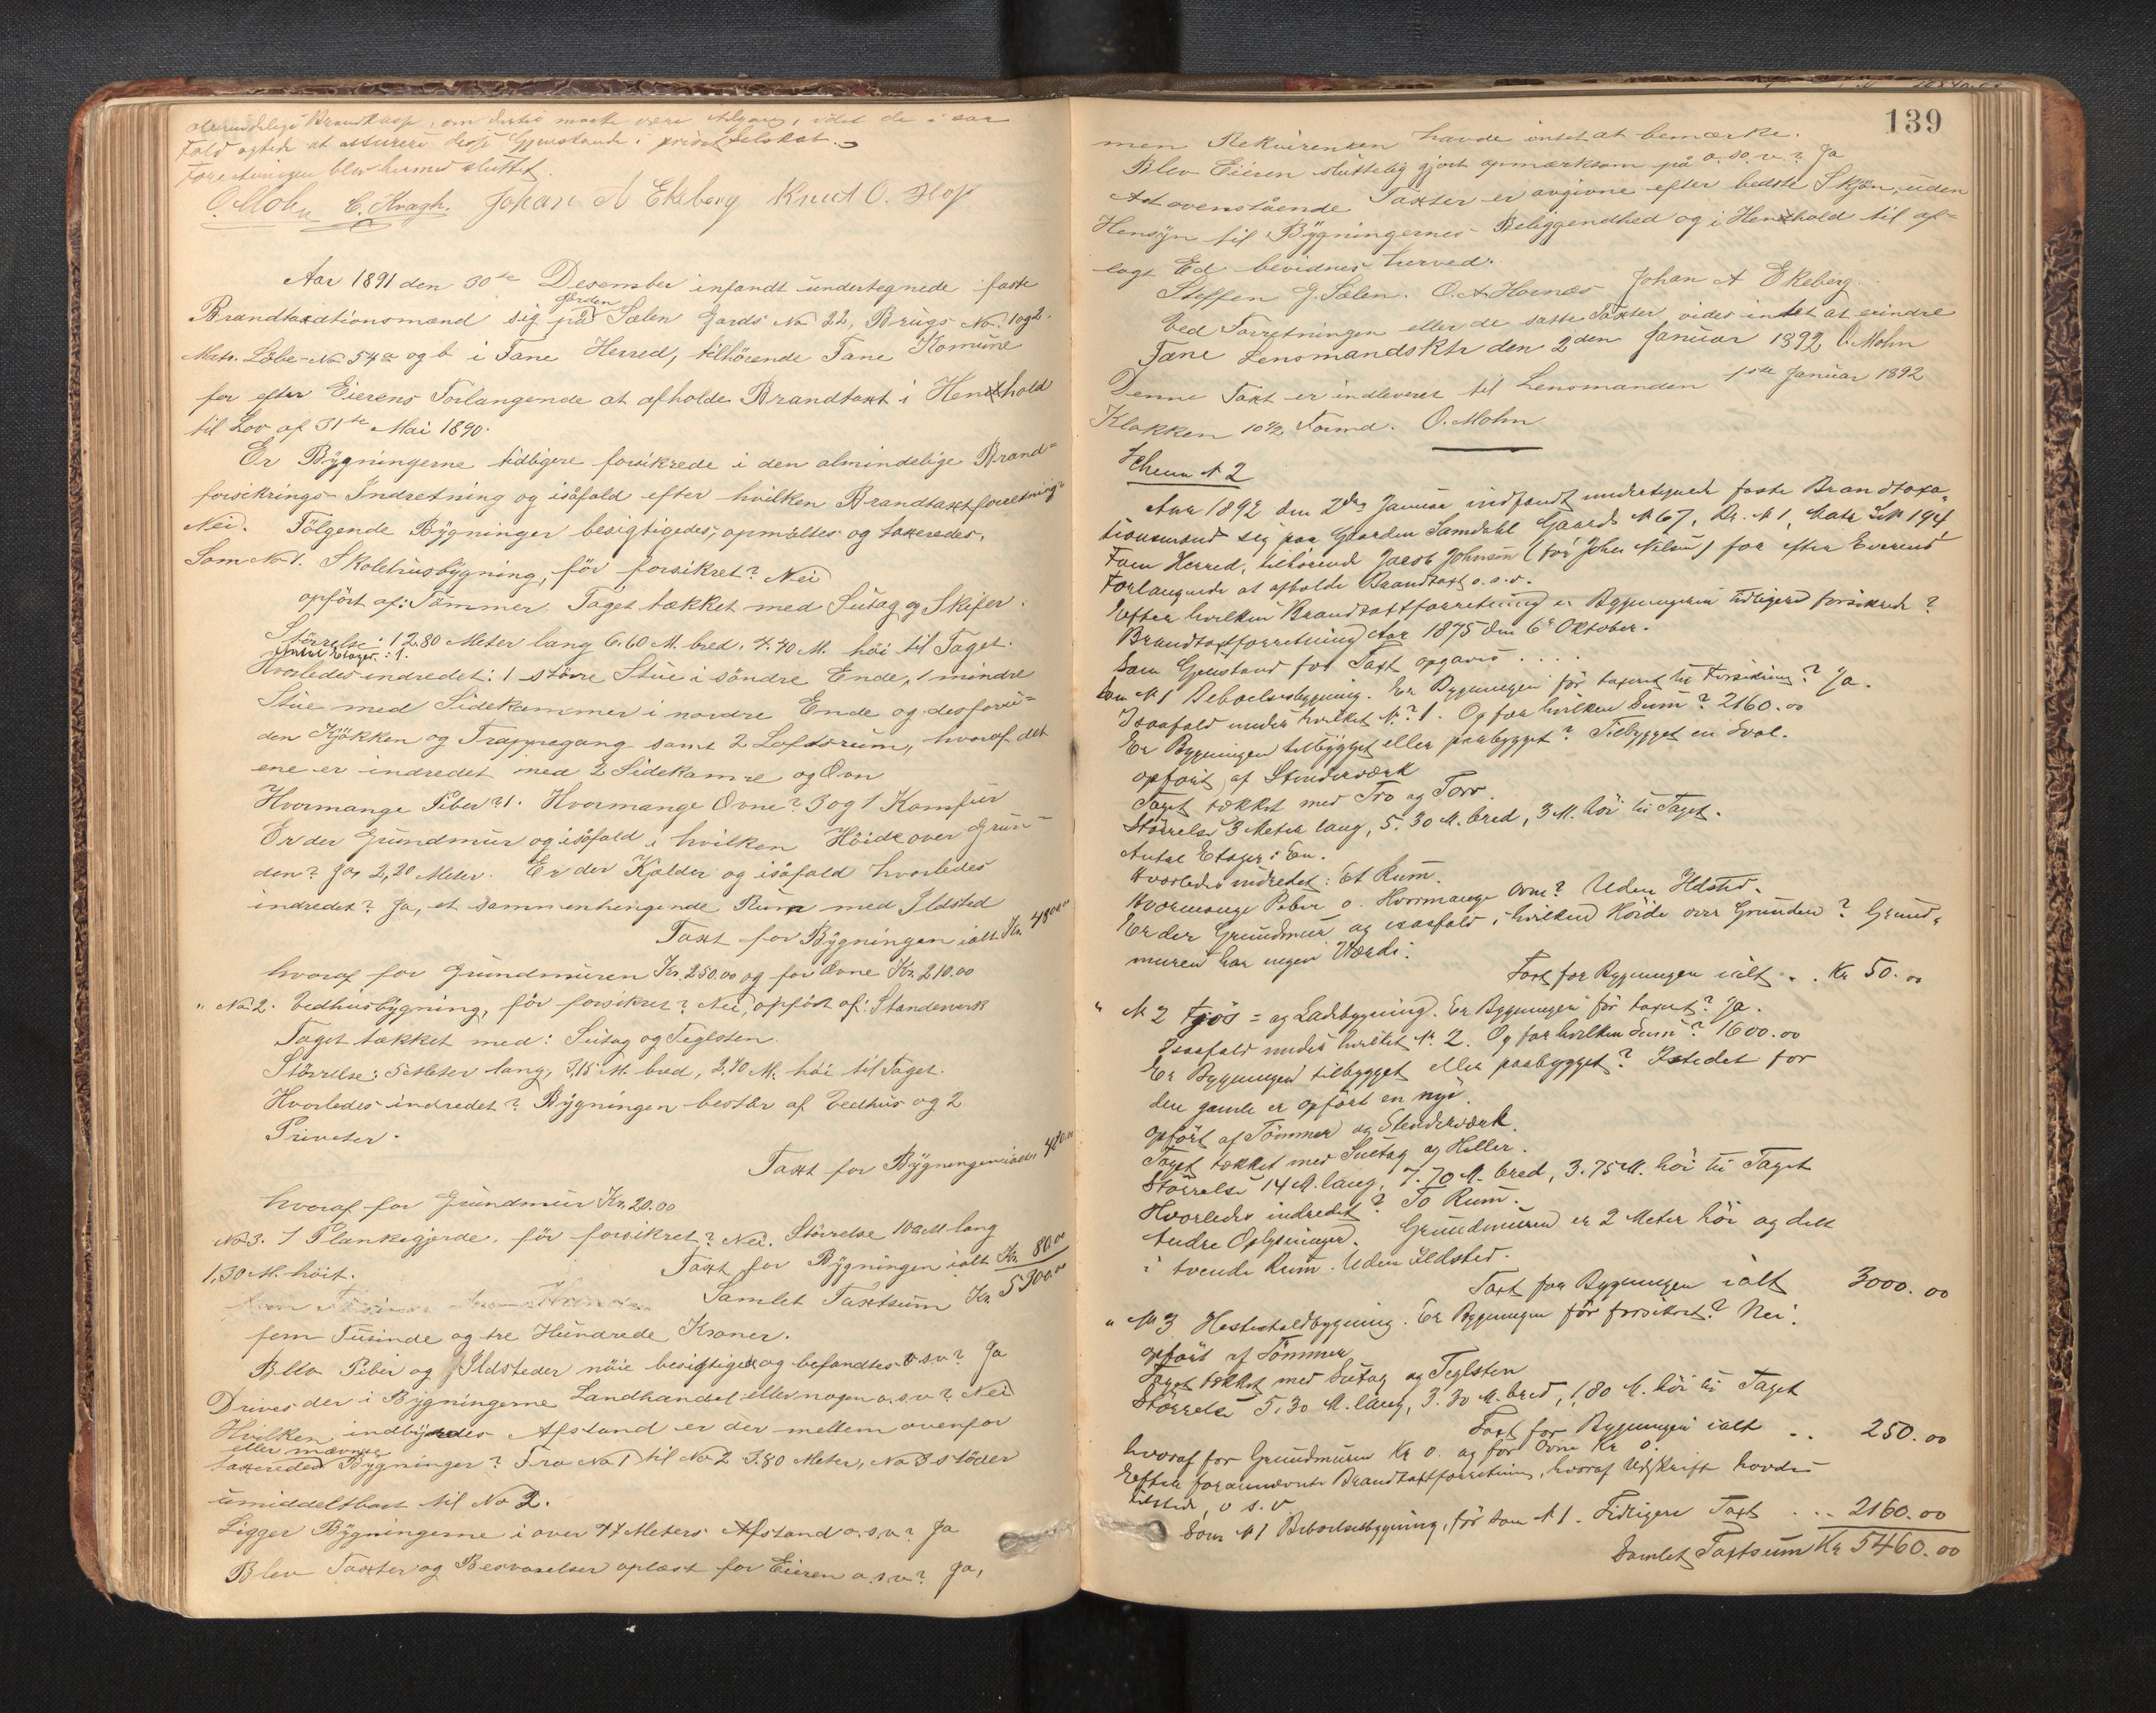 almindelige Brandkasse, om dertil maatte være Adgang, idet de i saa
Fald agtede at assurere disse Gjenstande i privat Selskab.
Forretningen blev hermed sluttet.
O. Mohn C. Kragh. Johan A Ekeberg Knut O. Hop
Aar 1891 den 30te Desember infandt undertegnede faste
Brandtaxationsmænd sig på Gården Sælen Gards No 22, Brugs No. 1 og 2.
Matr. Løbe-No 54a og b i Fane Herred, tilhörende Fane Komune
for efter Eierens Forlangende at afholde Brandtaxt i Henhold
til Lov af 31te Mai 1890.
Er Bygningerne tidligere forsikrede i den almindelige Brand=
forsikrings-Indretning og isåfald efter hvilken Brandtaxtforretning?
Nei. Fölgende Bygninger besigtigedes, opmåltes og taxeredes.
Som No 1. Skolehusbygning, för forsikret? Nei
opfört af: Tömmer. Taget tækket med Sutag og Skifer.
Störrelse: 12.80 Meter lang 6.60 M. bred. 4.40 M. höi til Taget.
Antal Etager: 1.
Hvorledes indredet: 1 större Stue i söndre Ende, 1 mindre
Stue med Sidekammer i nordre Ende og desforu=
den Kjökken og Trappegang samt 2 Loftsrum, hvoraf det
ene er indredet med 2 Sidekamre og Ovn
Hvormange Piber? 1. Hvormange Ovne? 3 og 1 Komfur
Er der Grundmur og isåfald i hvilken Höide over Grun=
den? Ja, 2,20 Meter. Er der Kjælder og isåfald hvorledes
indredet? Ja, et sammenhengende Rum med Ildsted
Taxt for Bygningen ialt Kr. 4800.00
hvoraf for Grundmuren Kr. 250.00 og for Ovne Kr. 210.00
" No 2. Vedhusbygning, för forsikret? Nei, opfört af: Standerverk
Taget tækket med: Sutag og Teglsten.
Störrelse: 5 Meter lang, 3,15 M. bred, 2.70 M. höi til Taget.
Hvorledes indredet? Bygningen består af Vedhus og 2
Priveter.
Taxt for Bygningen ialt 420.00
hvoraf for Grundmur Kr. 20.00
No 3. 1 Plankegjerde, för forsikret? Nei. Störrelse 100 M lang
1,30 M. höit. Taxt for Bygningen ialt Kr. 80.00
Samlet Taxtsum Kr. 5300.00
fem Tusinde og tre Hundrede Kroner.
Blev Piber og Ildsteder nöie besigtiget og befandtes o.s.v? Ja
Drives der i Bygningerne Landhandel eller nogen o.s.v? Nei
Hvilken indbyrdes Afstand er der mellem ovenfor
eller nævnte
taxerede Bygninger? Fra No 1 til No 2 3.80 Meter, No 3 stöder
umiddelbart til No 2.
Ligger Bygningerne i over 77 Meters Afstand o.s.v? Ja
Blev Taxter og Besvarelser oplæst for Eieren o.s.v? Ja,
139
men Rekvirenten havde intet at bemærke.
Blev Eieren sluttelig gjort opmærksom på o.s.v.? Ja
At ovenstående Taxter er avgivne efter bedste Skjön, uden
Hensyn til Bygningernes Beliggendhed og i Henhold til af=
lagt Ed bevidnes herved.
Steffen J. Sælen. O. A. Hornæs Johan A Ekeberg.
Ved Forretningen eller de satte Taxter vides intet at erindre
Fane Lensmandsktr den 2den Januar 1892 O. Mohn
Denne Taxt er indleveret til Lensmanden 1ste Januar 1892
Klokken 10½ Formd. O. Mohn
Schema N 2
Aar 1892 den 2den Januar indfandt undertegnede faste Brandtaxa=
tionsmænd sig paa Gaarden Samdahl Gaards N 67, Br. N 1, Matr LN 194
Fane Herred, tilhörende Jacob Johnsen (för Johs Nilsen) for efter Eierens
Forlangende at afholde Brandtaxt o.s.v.
Efter hvilken Brandtaxtforretning er Bygningerne tidligere forsikrede?
Brandtaxtforretning Aar 1875 den 6te Oktober.
Som Gjenstand for Taxt opgaves ....
Som N 1 Beboelsesbygning. Er Bygningen för taxeret til Forsikring? Ja.
Isaafald under hvilket N.? 1. Og for hvilken Sum? 2160.00
Er Bygningen tilbygget eller paabygget? Tilbygget en Sval.
opfört af Stenderværk
Taget tækket med Tro og Torv.
Störrelse 3 Meter lang, 5.30 M. bred, 3 M. höi til Taget.
Antal Etager: En.
Hvorledes indredet: Et Rum.
Hvormange Piber 0. Hvormange Ovne? Uden Ildsted.
Er der Grundmur og isaafald i hvilken Höide over Grunden? Grund=
muren har ingen Værdi.
Taxt for Bygningen ialt .. Kr 50.00
" N 2 Fjös= og Ladebygning. Er Bygningen för taxeret? Ja.
Isaafald under hvilket N. 2. Og for hvilken Sum? 1600.00
Er Bygningen tilbygget eller paabygget? Istedet for
den gamle er opfört en nye.
opfört af Tömmer og Stenderværk.
Taget tækket med Sutag og Heller.
Störrelse 14 M. lang, 7.70 M. bred, 3.75 M. höi til Taget
Hvorledes indredet? To Rum.
Andre Oplysninger. Grundmuren er 2 Meter höi og delt
i tvende Rum. Uden Ildsted.
Taxt for Bygningen ialt 3000.00
" N 3 Hestestaldbygning. Er Bygningen för forsikret? Nei.
opfört af Tömmer
Taget tækket med Sutag og Teglsten
Störrelse 5.30 M. lang, 3.30 M. bred, 1.80 M. höi til Taget
Taxt for Bygningen ialt .. 250.00
hvoraf for Grundmuren Kr 0. og for Ovne Kr 0.
Efter forannævnte Brandtaxtforretning, hvoraf Udskrift havdes
tilstede, o s. v
Som N 1 Beboelsesbygning, för som N 1. Tidligere Taxt ... 2160.00
Samlet Taxtsum Kr 5460.00